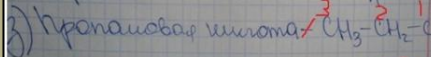 3) Пропановая кислота 3CH₃-2CH₂-1C